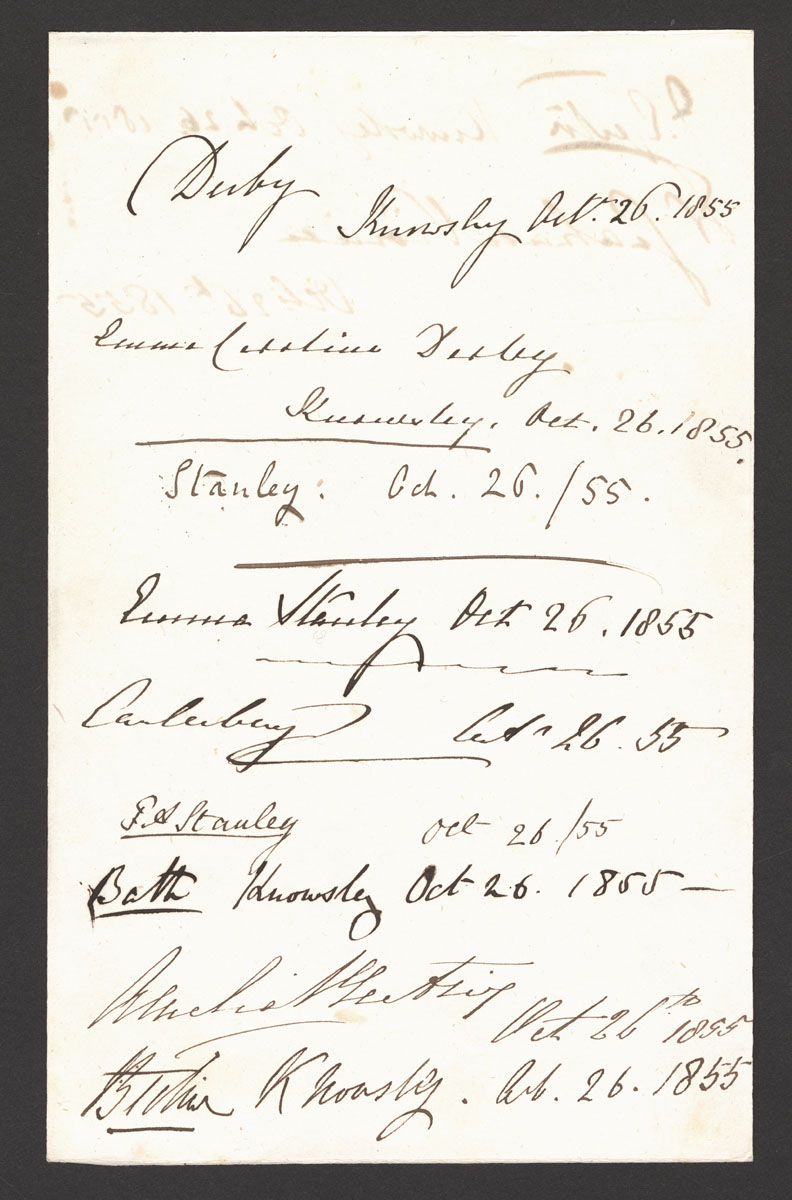 Derby
Knowsley Octr. 26. 1855
Emma Caroline Derby
Knowsley. Oct. 26. 1855.
Stanley. Oct. 26./55.
Emma Stanley Oct 26. 1855
Canterbury Octr 26. 55
F.A Stanley Oct 26/55
Bath Knowsley Oct 26. 1855 —
Oct 26th 1855
Knowsley. Oct. 26. 1855